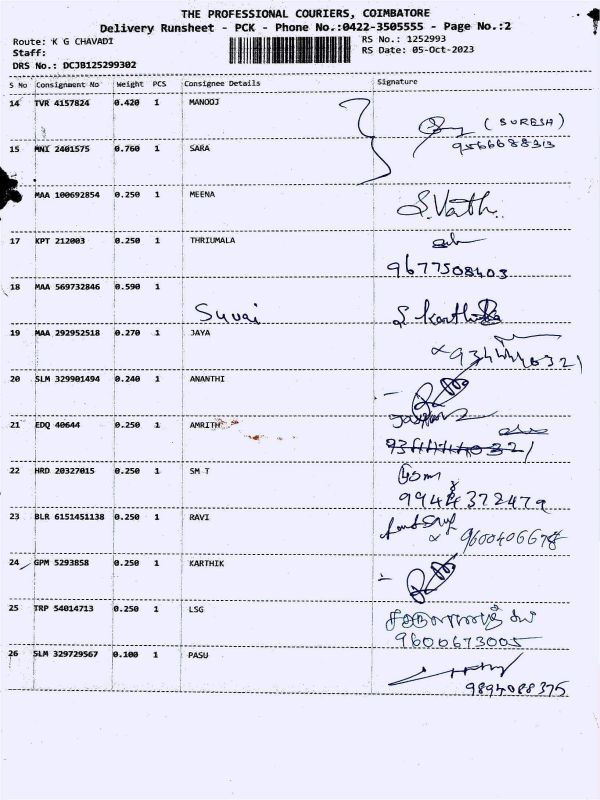 THE PROFESSIONAL COURIERS, COIMBATORE
Delivery Runsheet - PCK - Phone No.:0422-3505555 - Page No.:2
Route: K G CHAVADI RS No.: 1252993
Staff: RS Date: 05-Oct-2023
DRS No.: DCJB125299302
S No Consignment No Weight PCS Consignee Details Signature
14 TVR 4157824 0.420 1 MANOOJ
(SURESH)
9566688313
15 MNI 2401575 0.760 1 SARA
MAA 100692854 0.250 1 MEENA
S.Vath
17 KPT 212003 0.250 1 THRIUMALA
9677508403
18 MAA 569732846 0.590 1
Suvai S Karthika
19 MAA 292952518 0.270 1 JAYA
20 SLM 329901494 0.240 1 ANANTHI
21 EDQ 40644 0.250 1 AMRITH
22 HRD 20327015 0.250 1 SM T
23 BLR 6151451138 0.250 1 RAVI
9600406678
24 GPM 5293858 0.250 1 KARTHIK
25 TRP 54014713 0.250 1 LSG
9600673005
26 SLM 329729567 0.100 1 PASU
9894088375